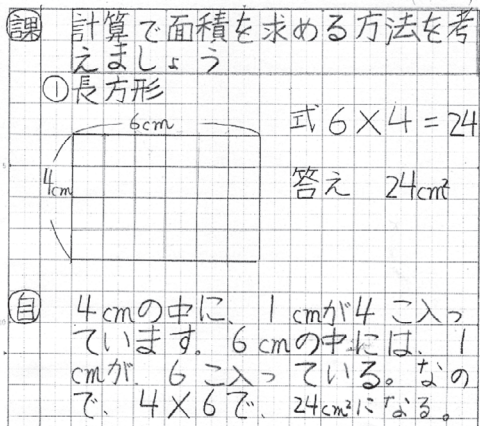 課 計算で面積を求める方法を考
えましょう
①長方形
6cm
式6×4=24
4cm
答え 24cm²
自 4cmの中に、1cmが4こ入っ
ています。6cmの中には、1
cmが、6こ入っている。なの
で、4×6で、24cm²になる。